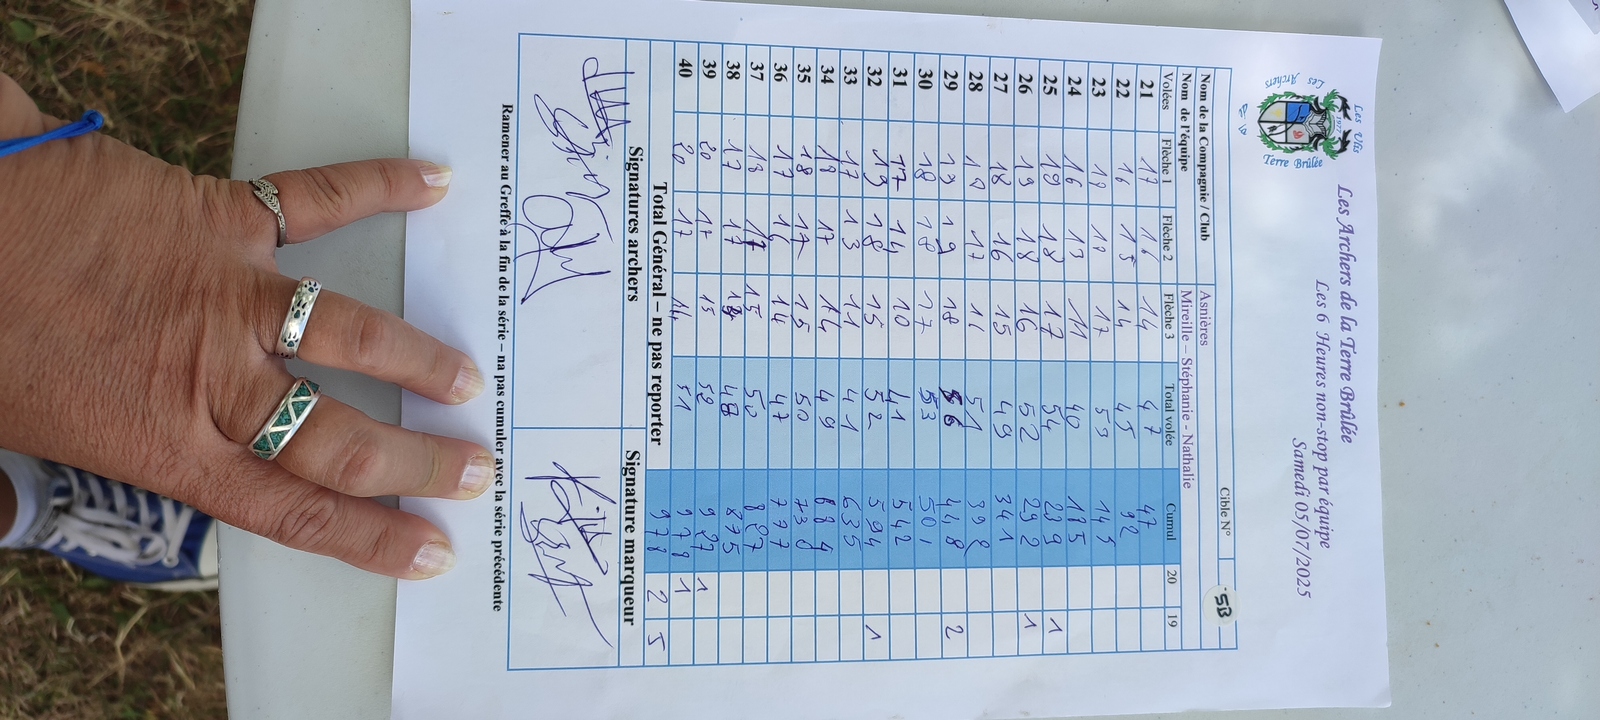 Les Archers de la Terre Brûlée
Les 6 Heures non-stop par équipe
Samedi 05/07/2025
Les Archers
Les Ulis
1977
Terre Brûlée
Cible N° 5B
Nom de la Compagnie / Club Asnières
Nom de l'équipe Mireille – Stéphanie - Nathalie
Volées Flèche 1 Flèche 2 Flèche 3 Total volée Cumul 20 19
21 17 16 14 47 47
22 16 15 14 45 92
23 19 17 53
24 16 13 11 40 185
25 19 18 17 54 239 1
26 19 18 16 52 292 1
27 18 16 15 49 341
28 17 51
29 19 19 18 56 448 2
30 18 18 17 53 501
31 17 14 10 41 542
32 19 18 15 52 594 1
33 17 13 11 41 635
34 18 17 14 49 684
35 18 17 15 50
36 17 16 14 47 777
37 18 17 15 50 827
38 17 17 48 875
39 20 17 15 52 927 1
40 20 17 14 51 978 1
Total Général – ne pas reporter 978 2 5
Signatures archers Signature marqueur
Ramener au Greffe à la fin de la série – na pas cumuler avec la série précédente